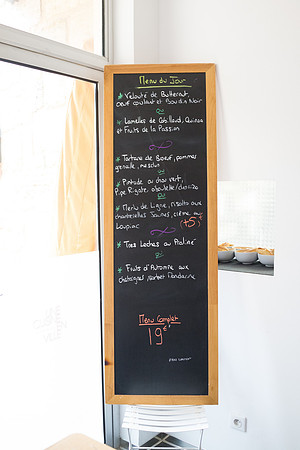 Menu du Jour
* Velouté de Butternut,
oeuf coulant et Boudin Noir
ou
* Lamelles de Cabillaud, Quinoa
et Fruits de la Passion
* Tartare de Boeuf, pommes
grenaille, mesclun
ou
* Pintade au chou vert,
Pipe Rigate,
ou
* Merlu de Ligne, risotto aux
chanterelles Jaunes, crème au
Loupiac (+5)
* Tres Leches au Praliné
ou
* Fruits d'Automne aux
chataignes, sorbet Mandarine
Menu Complet
19€